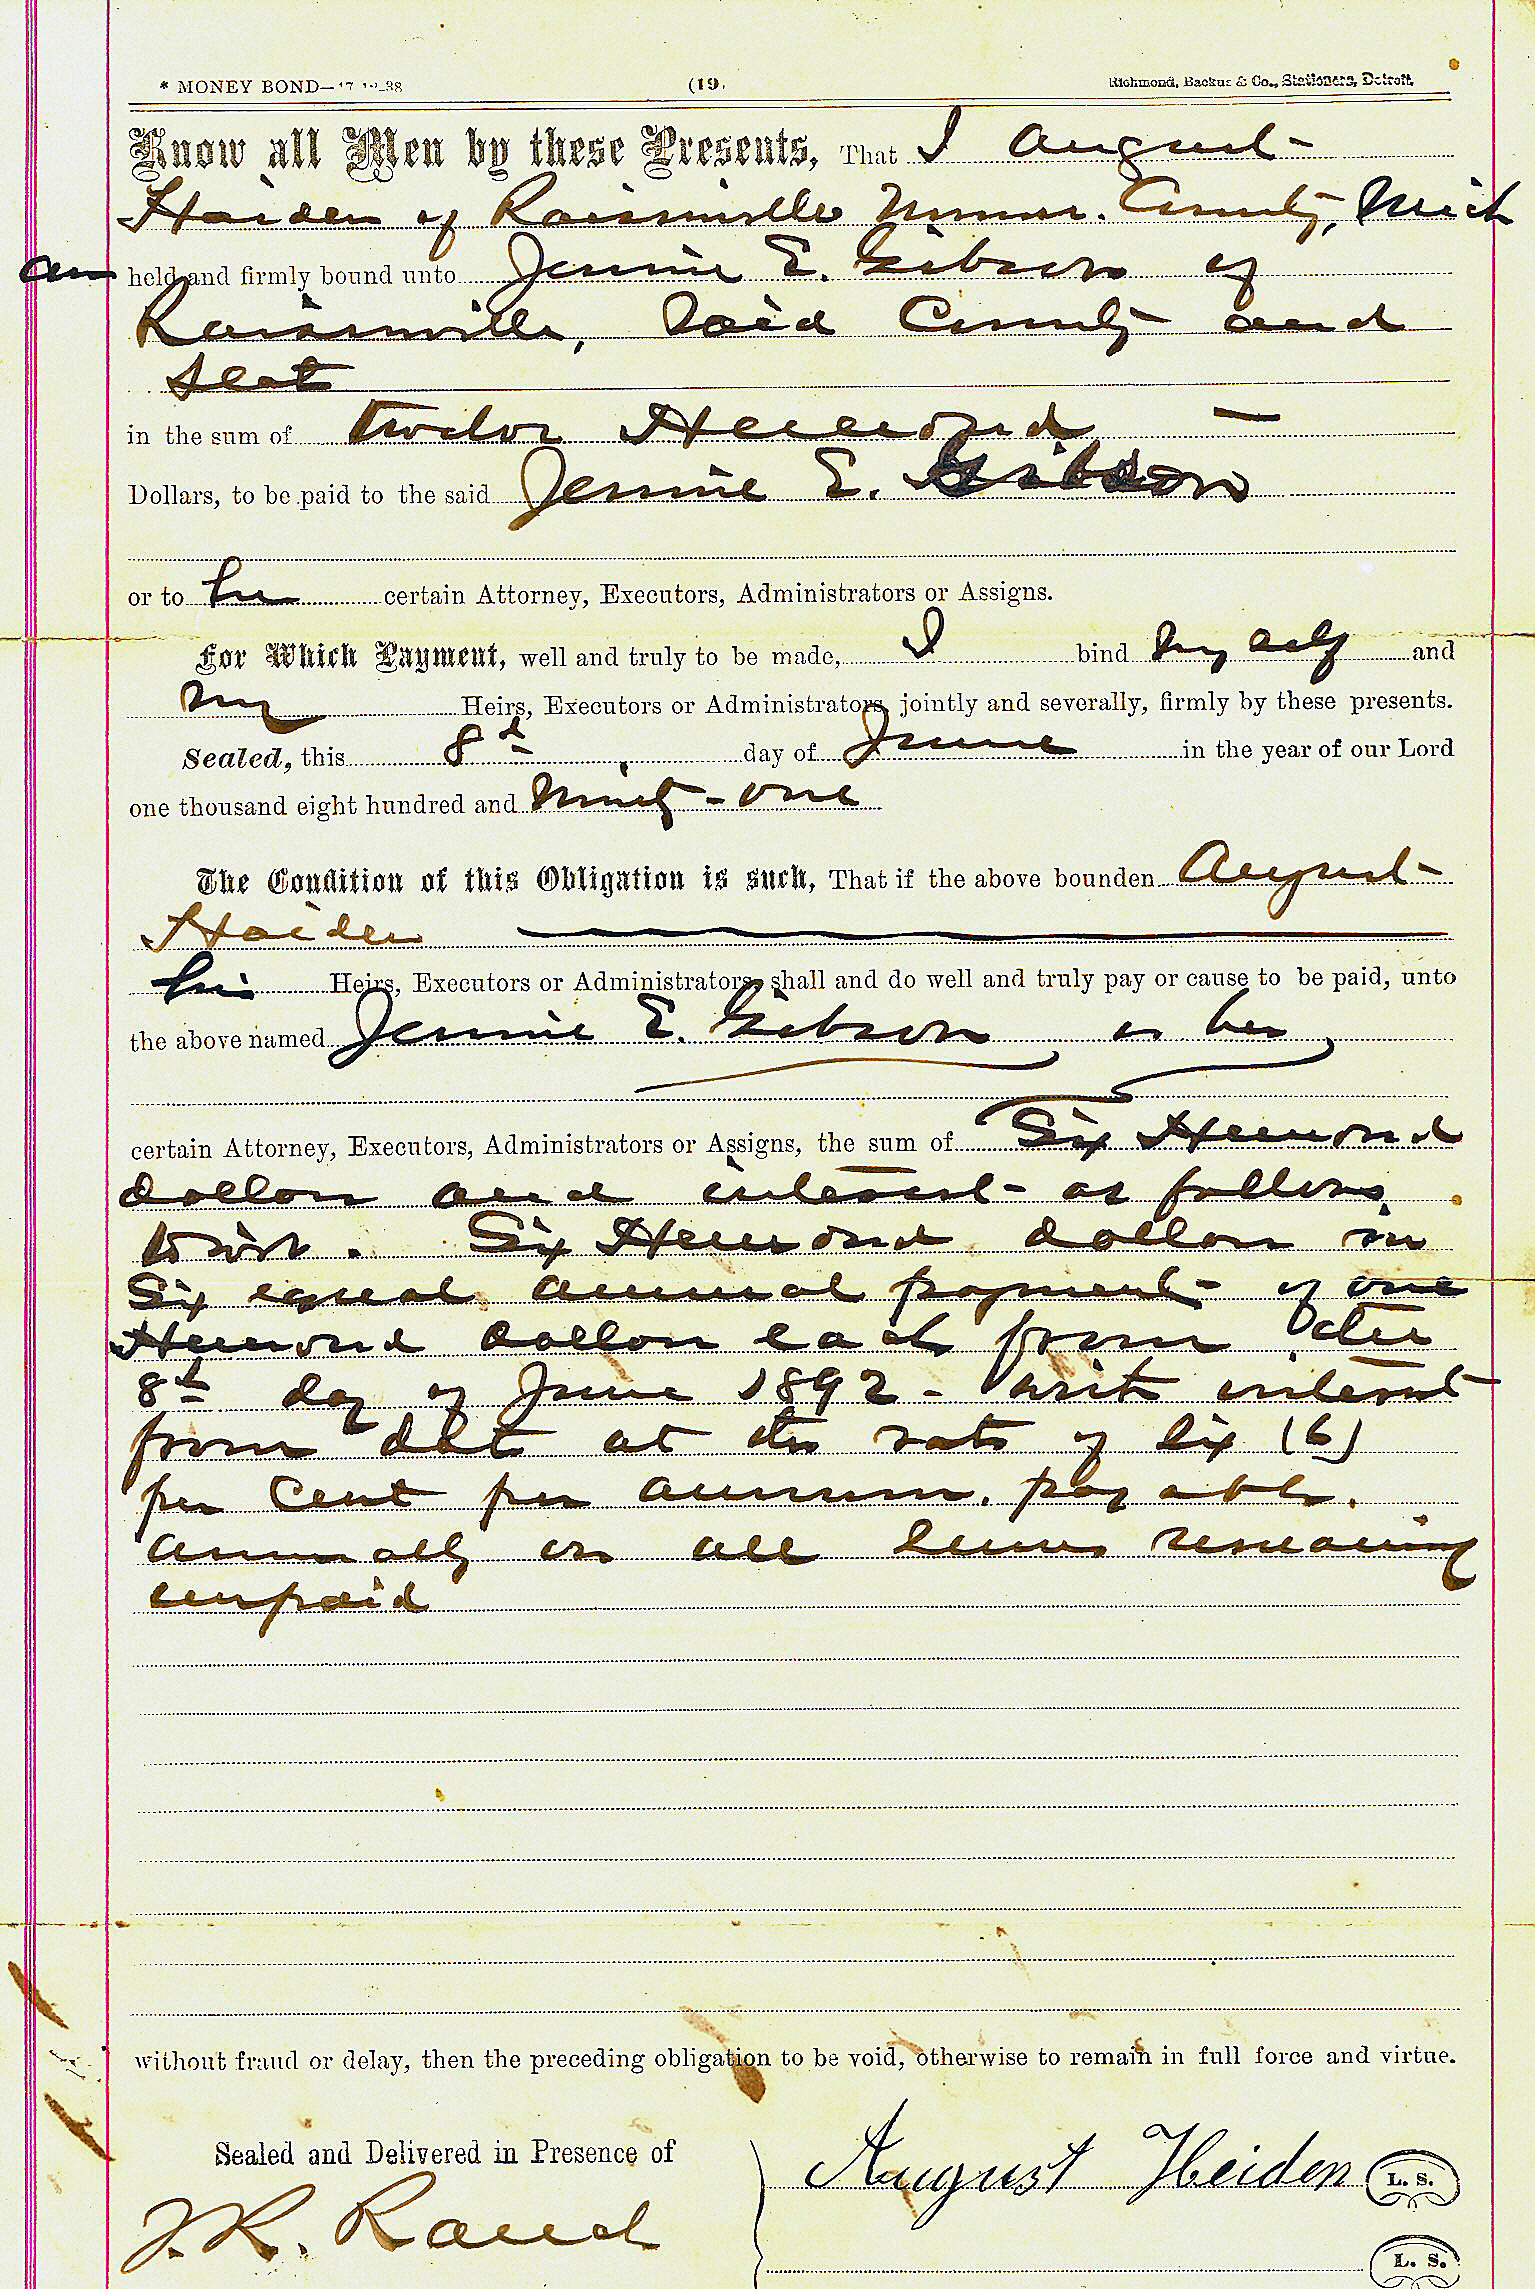 * MONEY BOND— (19.
Richmond, Backus & Co., Stationers, Detroit.
Know all Men by these Presents, That I August
Haiden of Raisinville Monroe County, Mich
am held and firmly bound unto Jennie E. Gibson of
Raisinville, Said County and
State
in the sum of twelve Hundred —
Dollars, to be paid to the said Jennie E. Gibson
or to her certain Attorney, Executors, Administrators or Assigns.
For Which Payment, well and truly to be made, I bind my self and
my Heirs, Executors or Administrators, jointly and severally, firmly by these presents.
Sealed, this 8th day of June in the year of our Lord
one thousand eight hundred and Ninety-one
The Condition of this Obligation is such, That if the above bounden August
Haiden
his Heirs, Executors or Administrators, shall and do well and truly pay or cause to be paid, unto
the above named Jennie E. Gibson or her
certain Attorney, Executors, Administrators or Assigns, the sum of Six Hundred
dollars and interest as follows
towit. Six Hundred dollars in
Six equal annual payments of one
Hundred dollars each from the
8th day of June 1892 - with interest
from date at the rate of Six (6)
per cent per annum. payable.
annually on all sums remaining
unpaid
without fraud or delay, then the preceding obligation to be void, otherwise to remain in full force and virtue.
Sealed and Delivered in Presence of
August Heiden L. S.
J. R. Rauch
L. S.